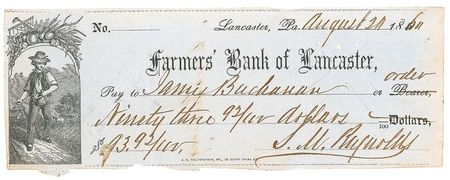 No. Lancaster, Pa. August 24 1864
Farmers' Bank of Lancaster,
Pay to James Buchanan or Bearer, order
Ninety three 92/100 dollars /100 Dollars,
$93.92/100. S. M. Reynolds